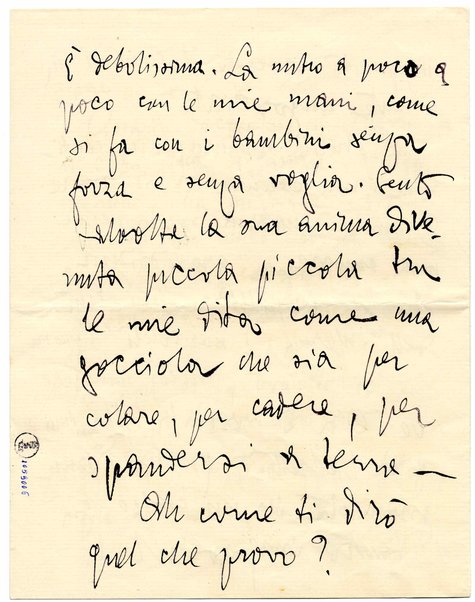 È debolissima. La nutro a poco a
poco con le mie mani, come
si fa con i bambini senza
forza e senza voglia. Sento
alvolte la sua anima dive-
nuta piccola piccola tra
le mie dita come una
gocciola che sia per
colare, per cadere, per
spandersi a terra —
Oh come ti dirò
quel che provo?